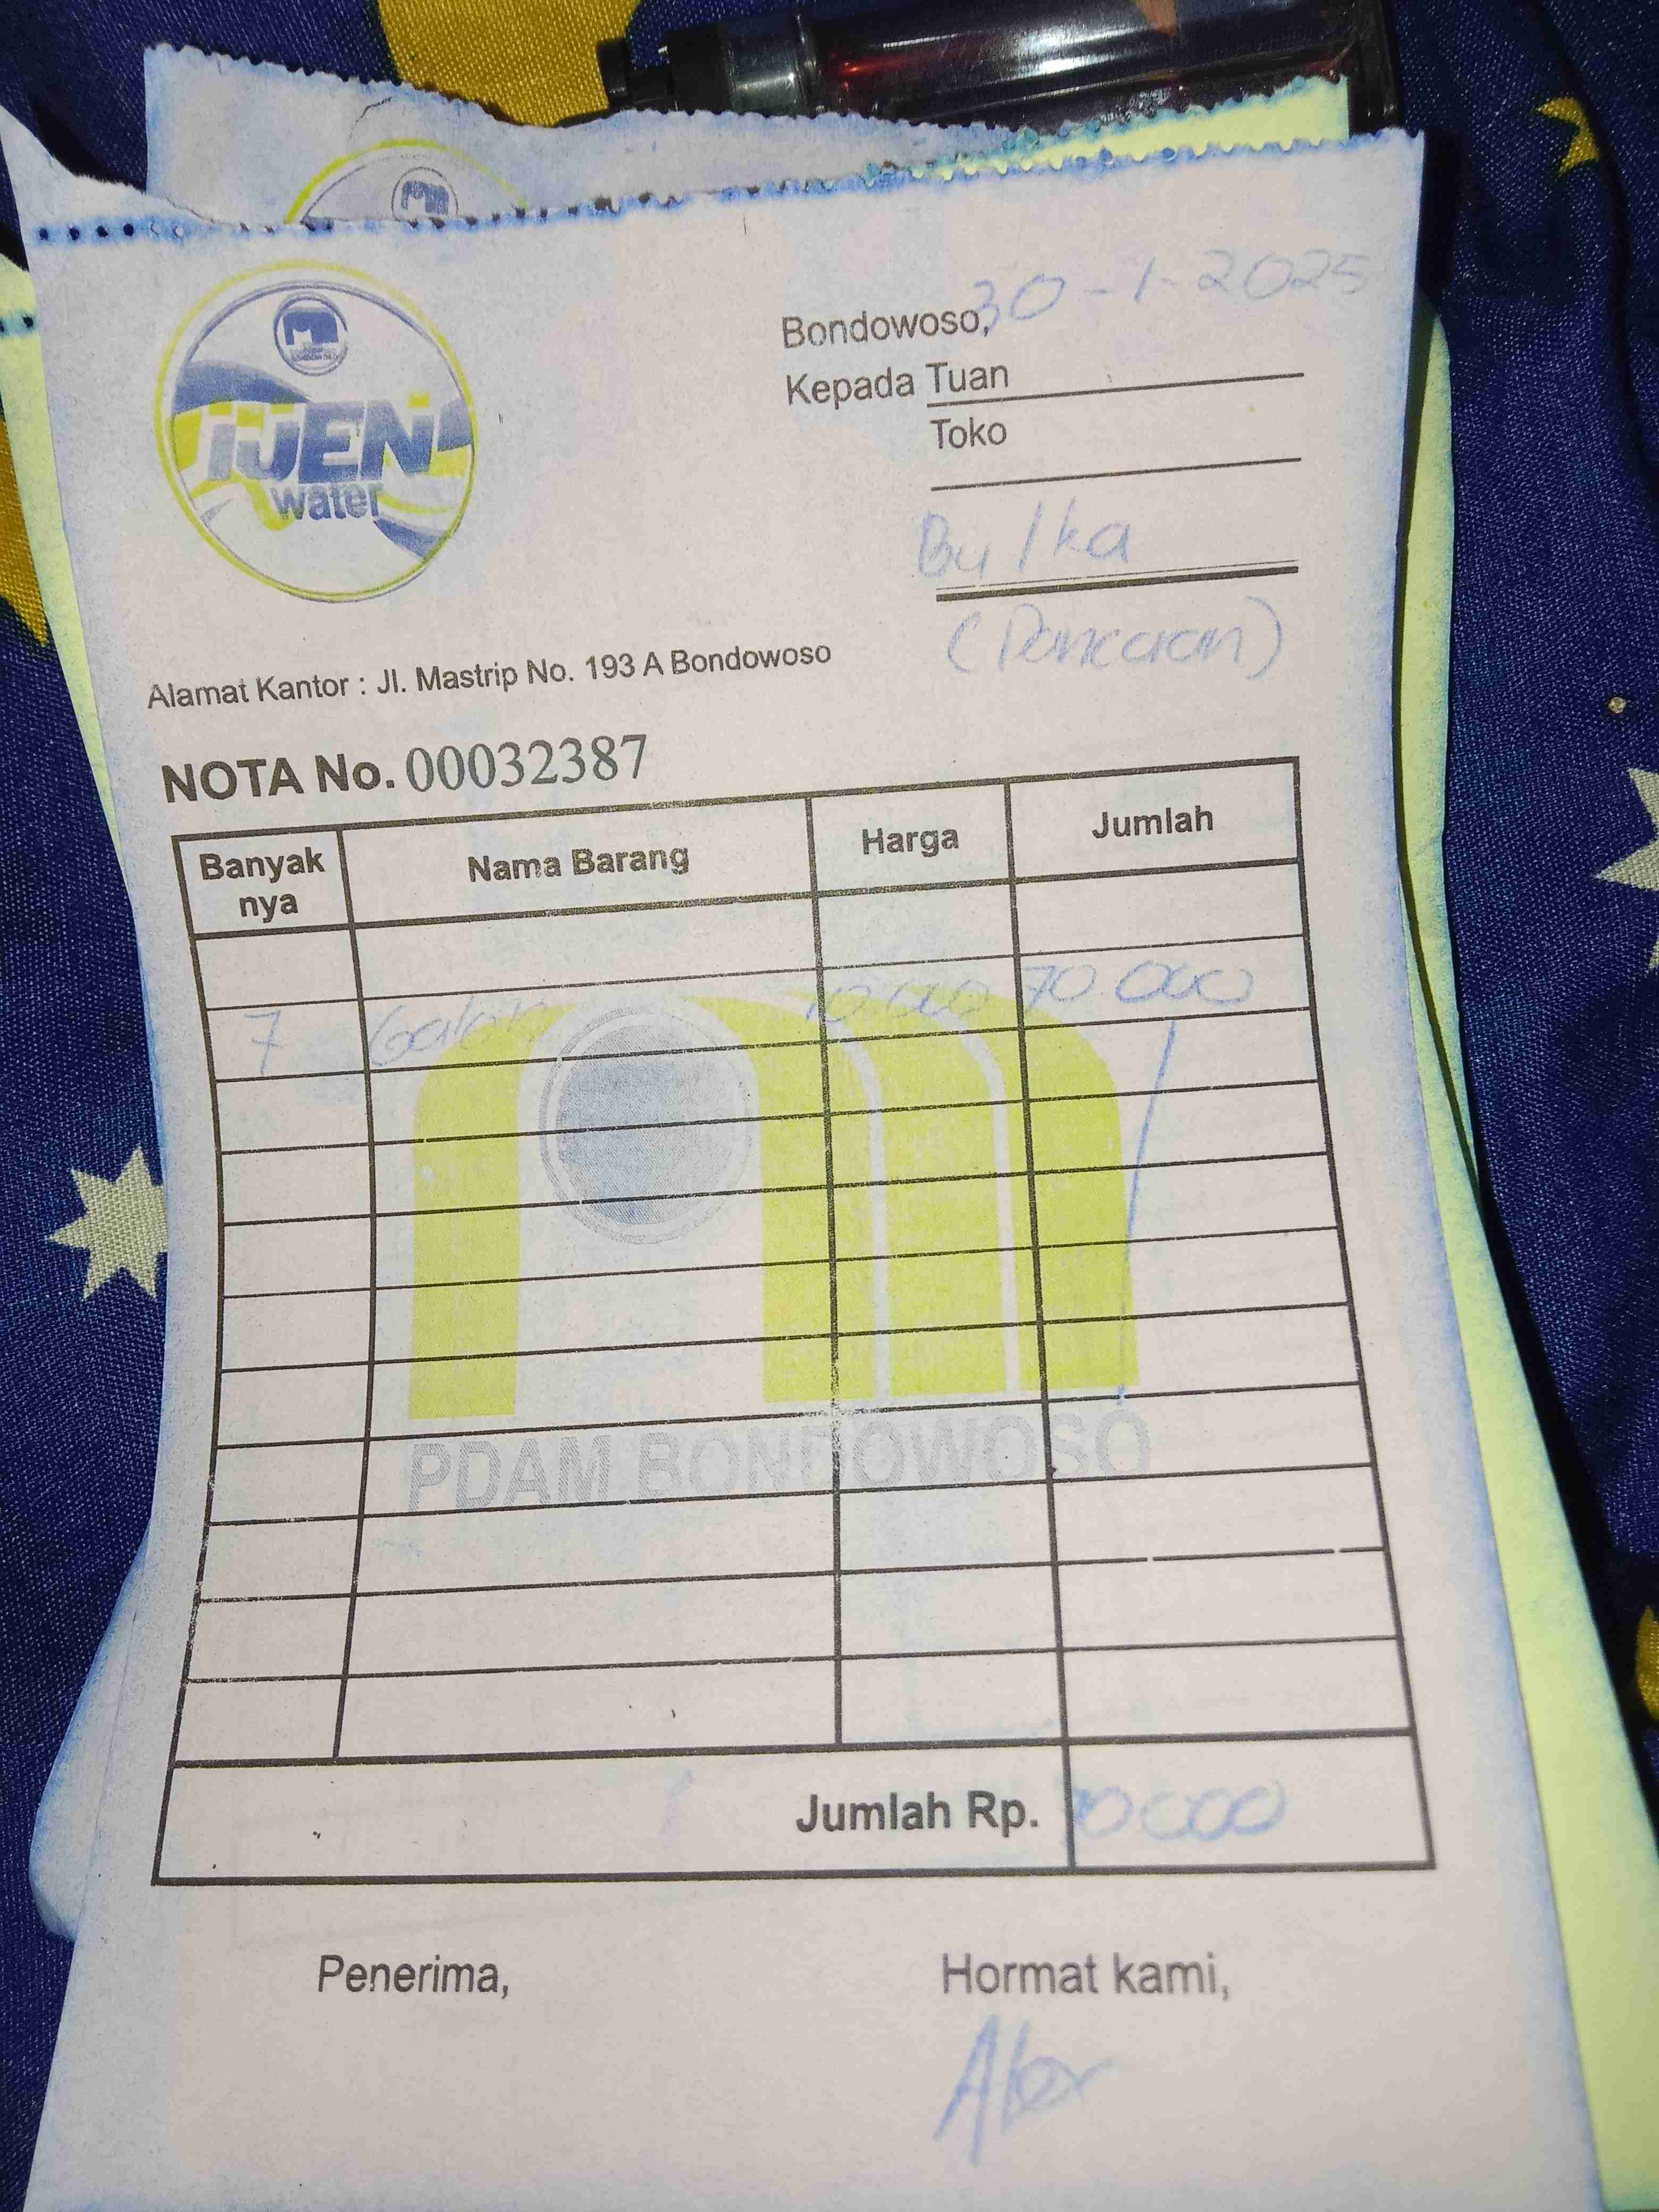 IJEN
water
Bondowoso, 30-1-2025
Kepada Tuan
Toko
Bu Ika
(Pancoran)
Alamat Kantor : Jl. Mastrip No. 193 A Bondowoso
NOTA No. 00032387
Banyak nya Nama Barang Harga Jumlah
7 Galon 10.000 70.000
PDAM BONDOWOSO
Jumlah Rp. 70000
Penerima, Hormat kami,